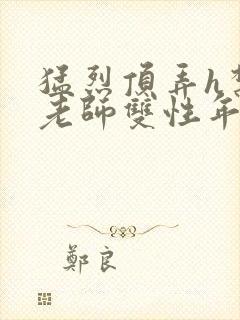 猛烈頂弄h
老師雙性年
鄭良